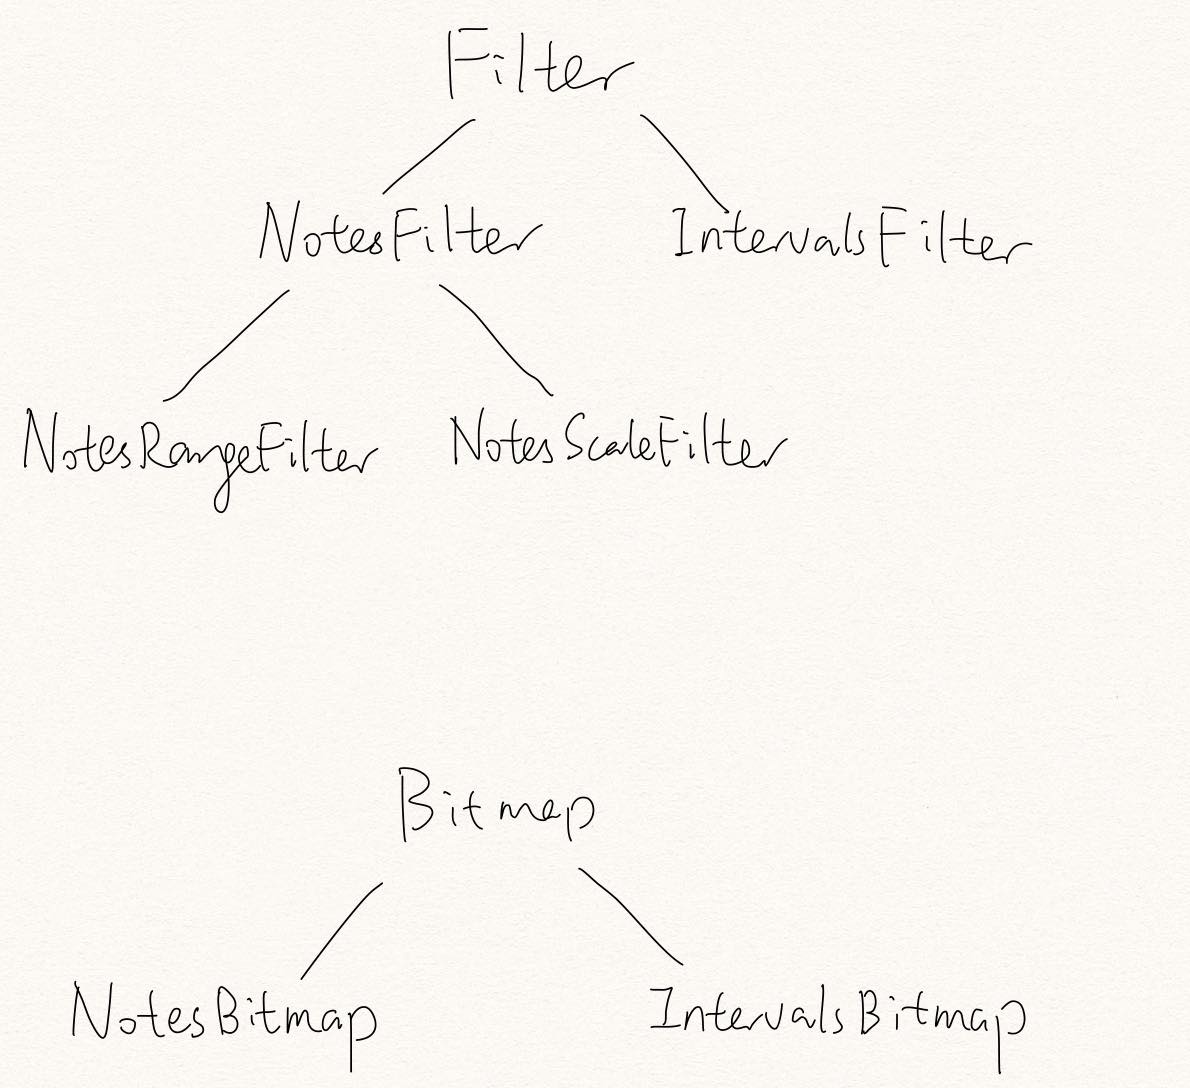 Filter
NotesFilter IntervalsFilter
NotesRangeFilter NotesScaleFilter
Bitmap
NotesBitmap IntervalsBitmap